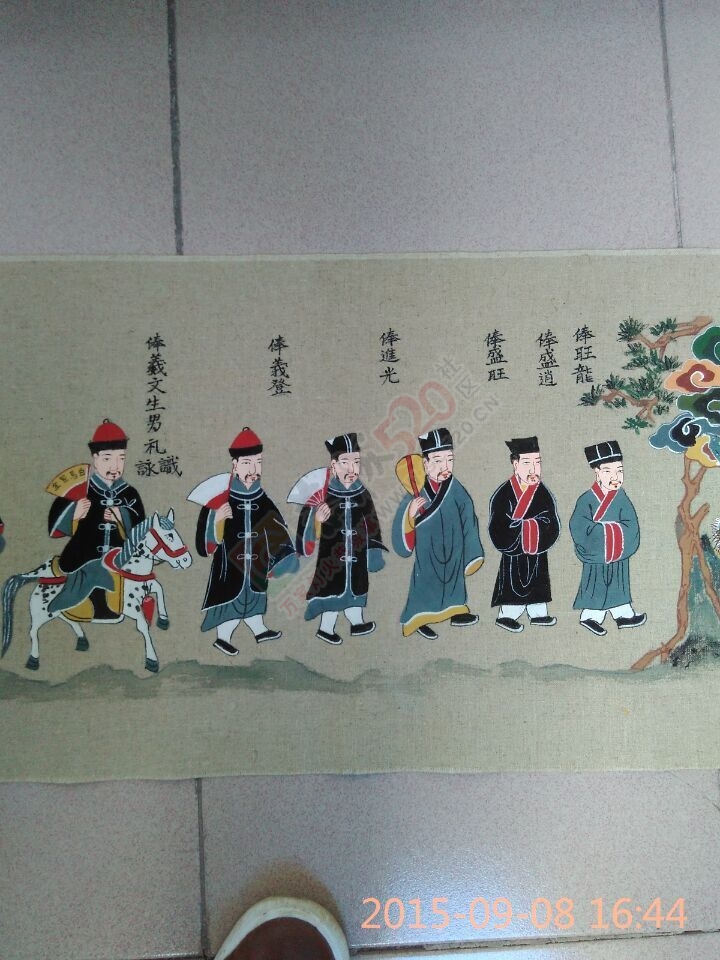 俸旺龍
俸盛逍
俸盛旺
俸進光
俸義登
俸羲文生男礼
詠識
2015-09-08 16:44